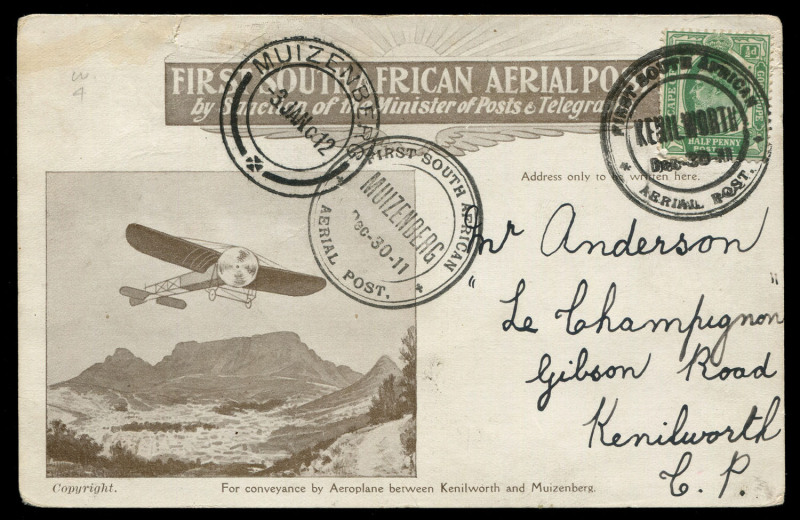 FIRST SOUTH AFRICAN AERIAL POST
by Sanction of the Minister of Posts & Telegraphs
MUIZENBERG
3 JAN 12
FIRST SOUTH AFRICAN
MUIZENBERG
Dec-30-11
AERIAL POST.
FIRST SOUTH AFRICAN
KENILWORTH
Dec-30-11
AERIAL POST.
HALF PENNY
Address only to be written here.
Mr Anderson
"Le Champignon"
Gibson Road
Kenilworth
C. P.
Copyright.
For conveyance by Aeroplane between Kenilworth and Muizenberg.